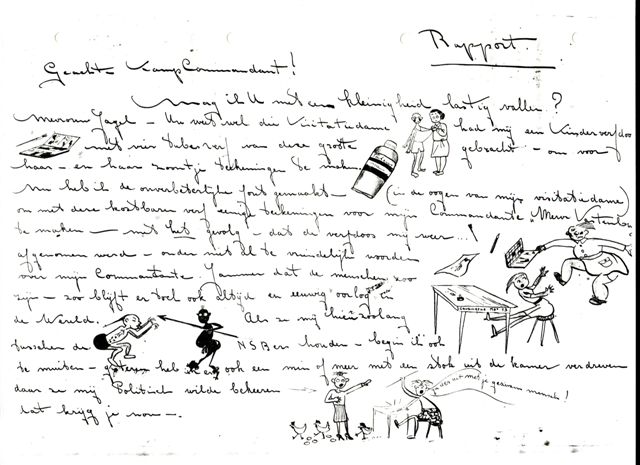 Rapport.
Geacht KampCommandant!
Mag ik U met een kleinigheid lastig vallen?
Mevrouw Jagel – U weet wel die Visitatiedame had mij een kinderverfdoos
met vier tubes verf van deze grootte gebracht – om voor
haar – en haar zoontje teekeningen te maken
Nu heb ik de onverbeterlijke fout gemaakt – (in de oogen van mijn visitatiedame)
om met deze kostbare verf eenige teekeningen voor mijn Commandante Mevr
te maken – met het gevolg – dat de verfdoos mij weer...!
afgenomen werd – onder niet al te vriendelijke woorden
over mijn Commandante. Jammer dat de menschen zoo
zijn – zoo blijft er toch ook altijd en eeuwig oorlog in
de Wereld. Als ze mij hier zoolang
tusschen de NSBers houden – begin ik ook
te muiten – gisteren heb ik er ook een min of meer met een stok uit de kamer verdreven
daar ze mij Politisch wilde bekeeren
dat krijg je nou –.